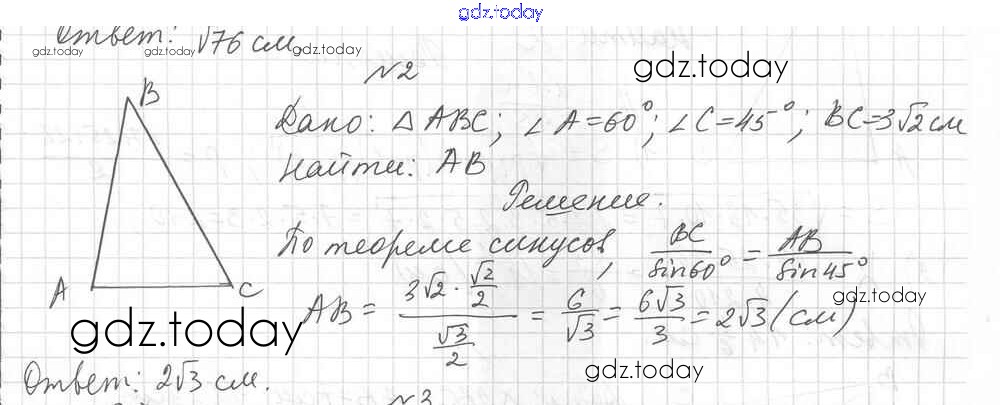 gdz.today
Ответ: √76 см.
gdz.today gdz.today gdz.today
№2
gdz.today
B
Дано: △ ABC; ∠A=60°; ∠C=45°; BC=3√2 см
Найти: AB
Решение.
По теореме синусов, BC/sin60° = AB/sin45°
A C
gdz.today
AB = (3√2 · √2/2)/(√3/2) = 6/√3 = 6√3/3 = 2√3 (см)
gdz.today
gdz.today
Ответ: 2√3 см.
№3